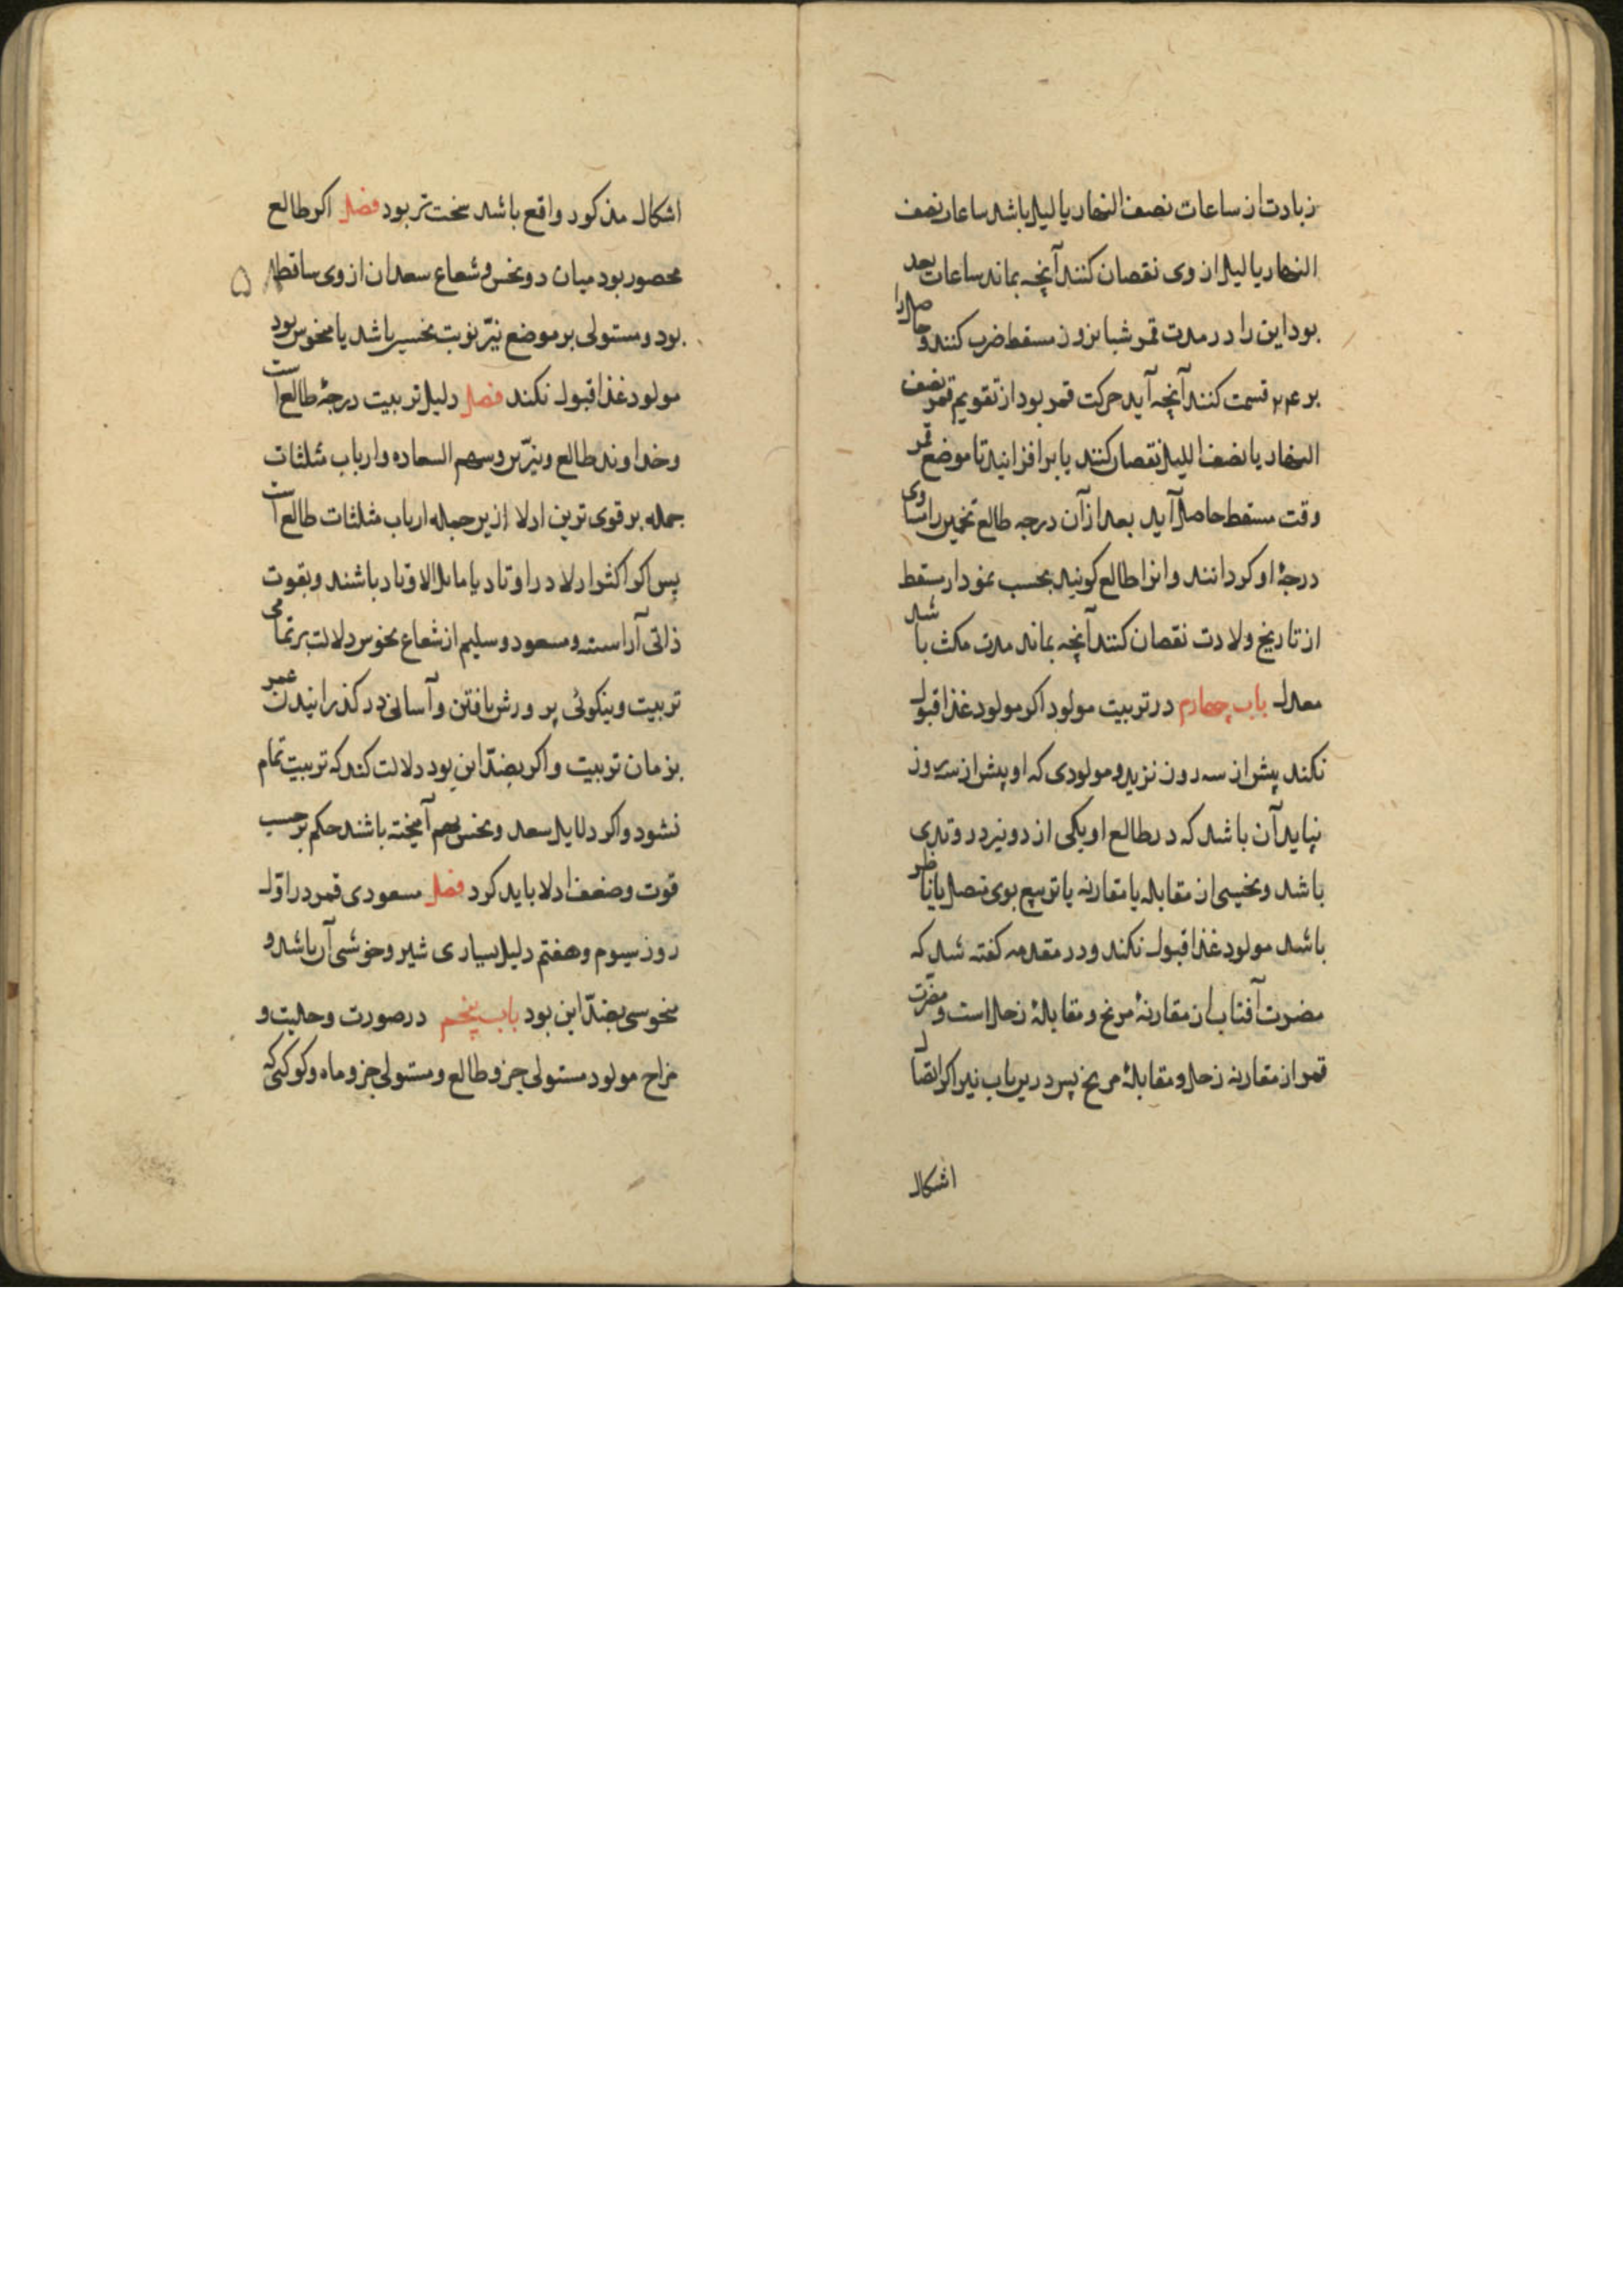 زیادت از ساعات نصف النهار یا لیل باشد ساعات نصف
النهار یا لیل از وی نقصان کنند آنچه بماند ساعات بعد
بود این را در مدت قمر شبانروز مسقط ضرب کنند و حاصل را
بر ۲۴ قسمت کنند آنچه آید حرکت قمر بود از تقویم قمر نصف
النهار یا نصف اللیل نقصان کنند یا بر افزایند تا موضع قمر
وقت مسقط حاصل آید بعد از آن درجه طالع تخمین را مساوی
درجهٔ او کردانند و انرا طالع کویند بحسب نمودار مسقط
از تاریخ ولادت نقصان کنند آنچه بماند مدت مکث باشد
معدل باب چهارم در تربیت مولود اکر مولود غذا قبول
نکند پیش از سه روز نزید و مولودی که او پیش از سه روز
نپاید آن باشد که در طالع او یکی از دو نیر در وتدی
باشد و نحسی از مقابله یا مقارنه یا تربیع بوی متصل یا ناظر
باشد مولود غذا قبول نکند و در مقدمه کفته شد که
مضرت آفتاب از مقارنهٔ مریخ و مقابلهٔ زحل است و مضرت
قمر از مقارنه زحل و مقابلهٔ مریخ پس درین باب نیز اکر اتصال
اشکال
اشکال مذکور واقع باشد سخت تر بود فصل اکر طالع
محصور بود میان دو نحس و شعاع سعدان از وی ساقط
بود و مستولی بر موضع نیّر نوبت نحس باشد یا منحوس بود
مولود غذا قبول نکند فصل دلیل تربیت درجهٔ طالع است
و خداوند طالع و نیّرین و سهم السعاده و ارباب مثلثات
جمله بر قوی ترین ادلا ازین جمله ارباب مثلثات طالع است
پس اکر اکثر ادلا در اوتاد یا مایل الاوتاد باشند و بقوت
ذاتی آراسته و مسعود و سلیم از شعاع نحوس دلالت بر تمامی
تربیت و نیکوئی پرورش یافتن و آسانی در کذرانیدن عمر
بزمان تربیت و اکر بضدّ این بود دلالت کند که تربیت تمام
نشود و اکر دلایل سعد و نحس بهم آمیخته باشند حکم بر حسب
قوت و ضعف ادلا باید کرد فصل مسعودی قمر در اوّل
روز سیوم و هفتم دلیل بسیاری شیر و خوشی آن باشد و
منحوسی بضدّ این بود باب پنجم در صورت و حلیت و
مزاج مولود مستولی جزو طالع و مستولی جزو ماه و کوکبی که